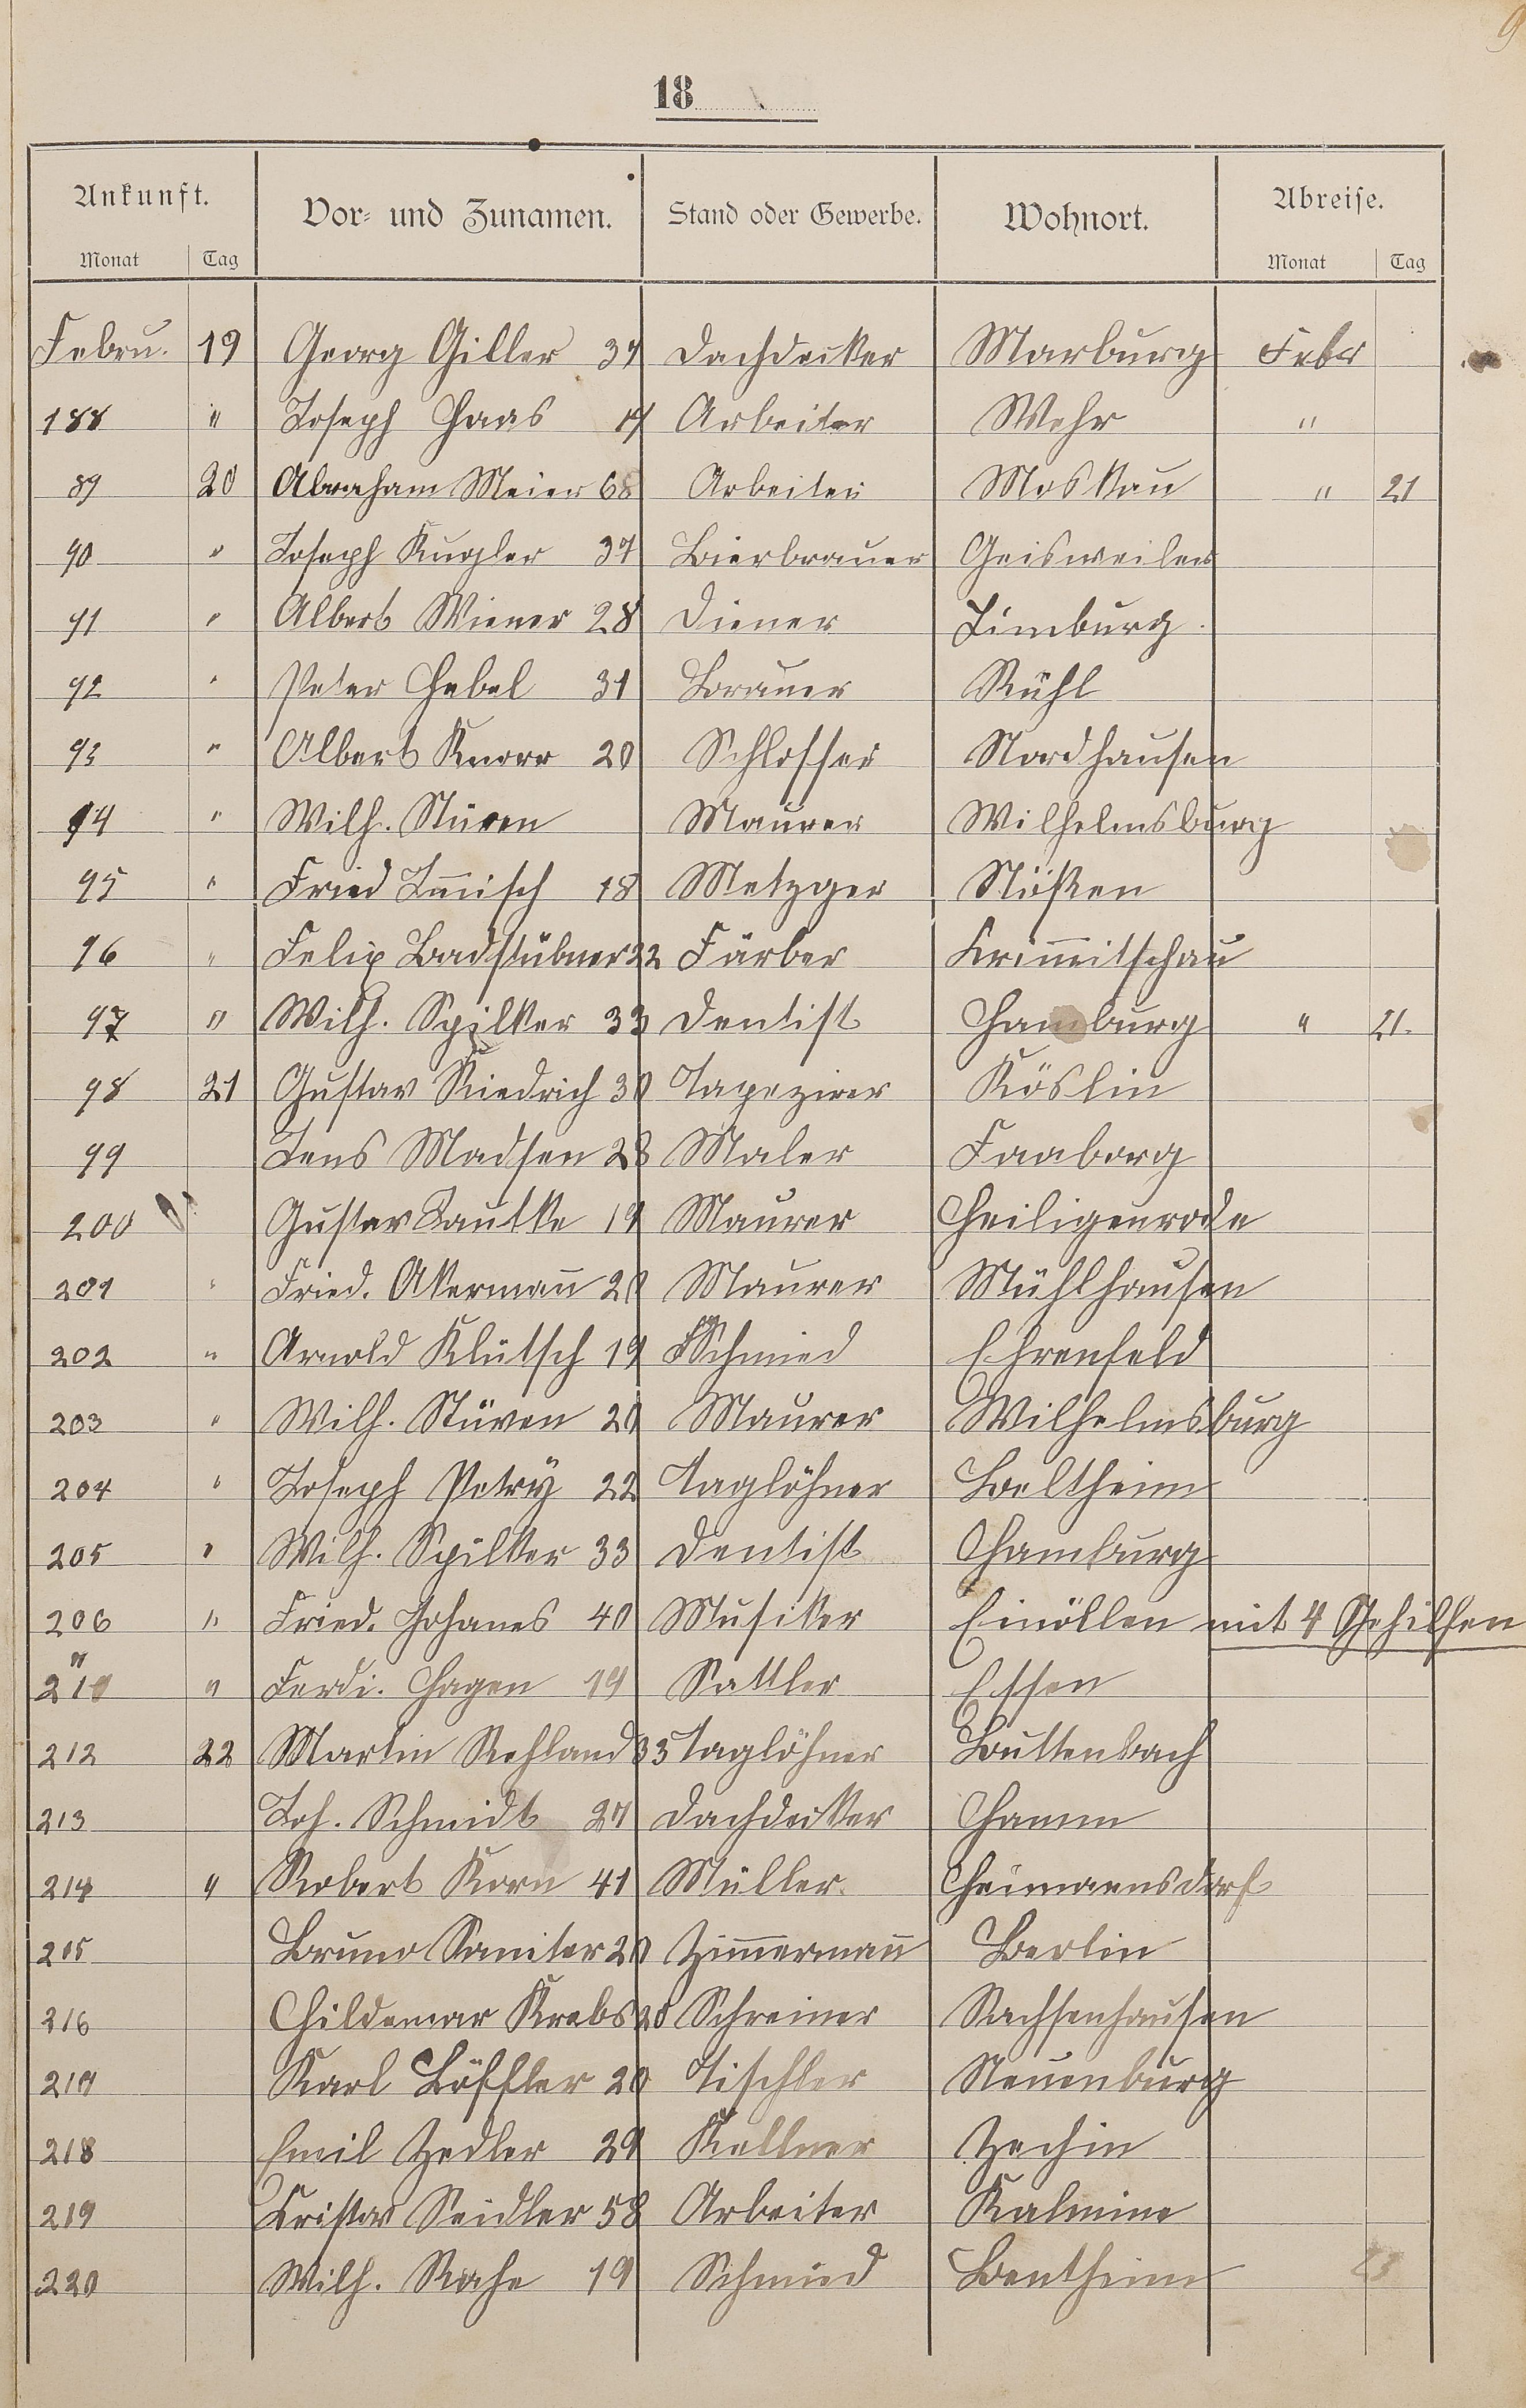 9
18
Ankunft. Vor- und Zunamen. Stand oder Gewerbe. Wohnort. Abreise.
Monat Tag Monat Tag
Febru. 19 Georg Giller 37 Dachdecker Marburg Febr
188 " Joseph Haas 17 Arbeiter Wehr "
89 20 Abraham Meier 68 Arbeiter Moskau " 21
90 " Joseph Kugler 37 Bierbrauer Geisweiler
91 " Albert Wiener 28 Diener Limburg.
92 " Peter Hebel 31 Brauer Rühl
93 " Albert Knorr 20 Schlosser Nordhausen
94 " Wilh. Stüven Maurer Wilhelmsburg
95 " Fried 18 Metzger Stößen
96 " Felix Badstübner 22 Färber Krim̄itschau
97 " Wilh. Spilker 33 Dentist Hamburg " 21.
98 21 Gustav Riedrich 30 Tapezirer Köslin
99 Jens Madsen 28 Maler Faaborg
200 Gustav Lautke 19 Maurer Heiligenrode
201 " Fried. Akerman̄ 20 Maurer Mühlhausen
202 " Arnold Klütsch 19 Schmied Ehrenfeld
203 " Wilh. Stüven 20 Maurer Wilhelmsburg
204 " Joseph Petry 22 Taglöhner Beltheim
205 " Wilh. Spilker 33 Dentist Hamburg
206 " Fried. Johanes 40 Musiker Einöllen mit 4 Gehilfen
"
210 " Ferdi. Hagen 19 Sattler Essen
212 22 Martin Rehland 35 Taglöhner Buttenbach
213 Joh. Schmidt 27 Dachdecker Hamm
214 " Robert Korn 41 Müller. Heimannsdorf
215 Bruno Saniter 20 Zim̄erman̄ Berlin
216 Hildemar Krebs 20 Schreiner Sachsenhausen
217 Karl Löffler 20 Tischler Neuenburg
218 Emil Zedler 29 Kellner Zechin
219 Kristof Seidler 58 Arbeiter Kalmine
220 Wilh. Rahe 19 Schmied Bentheim 23